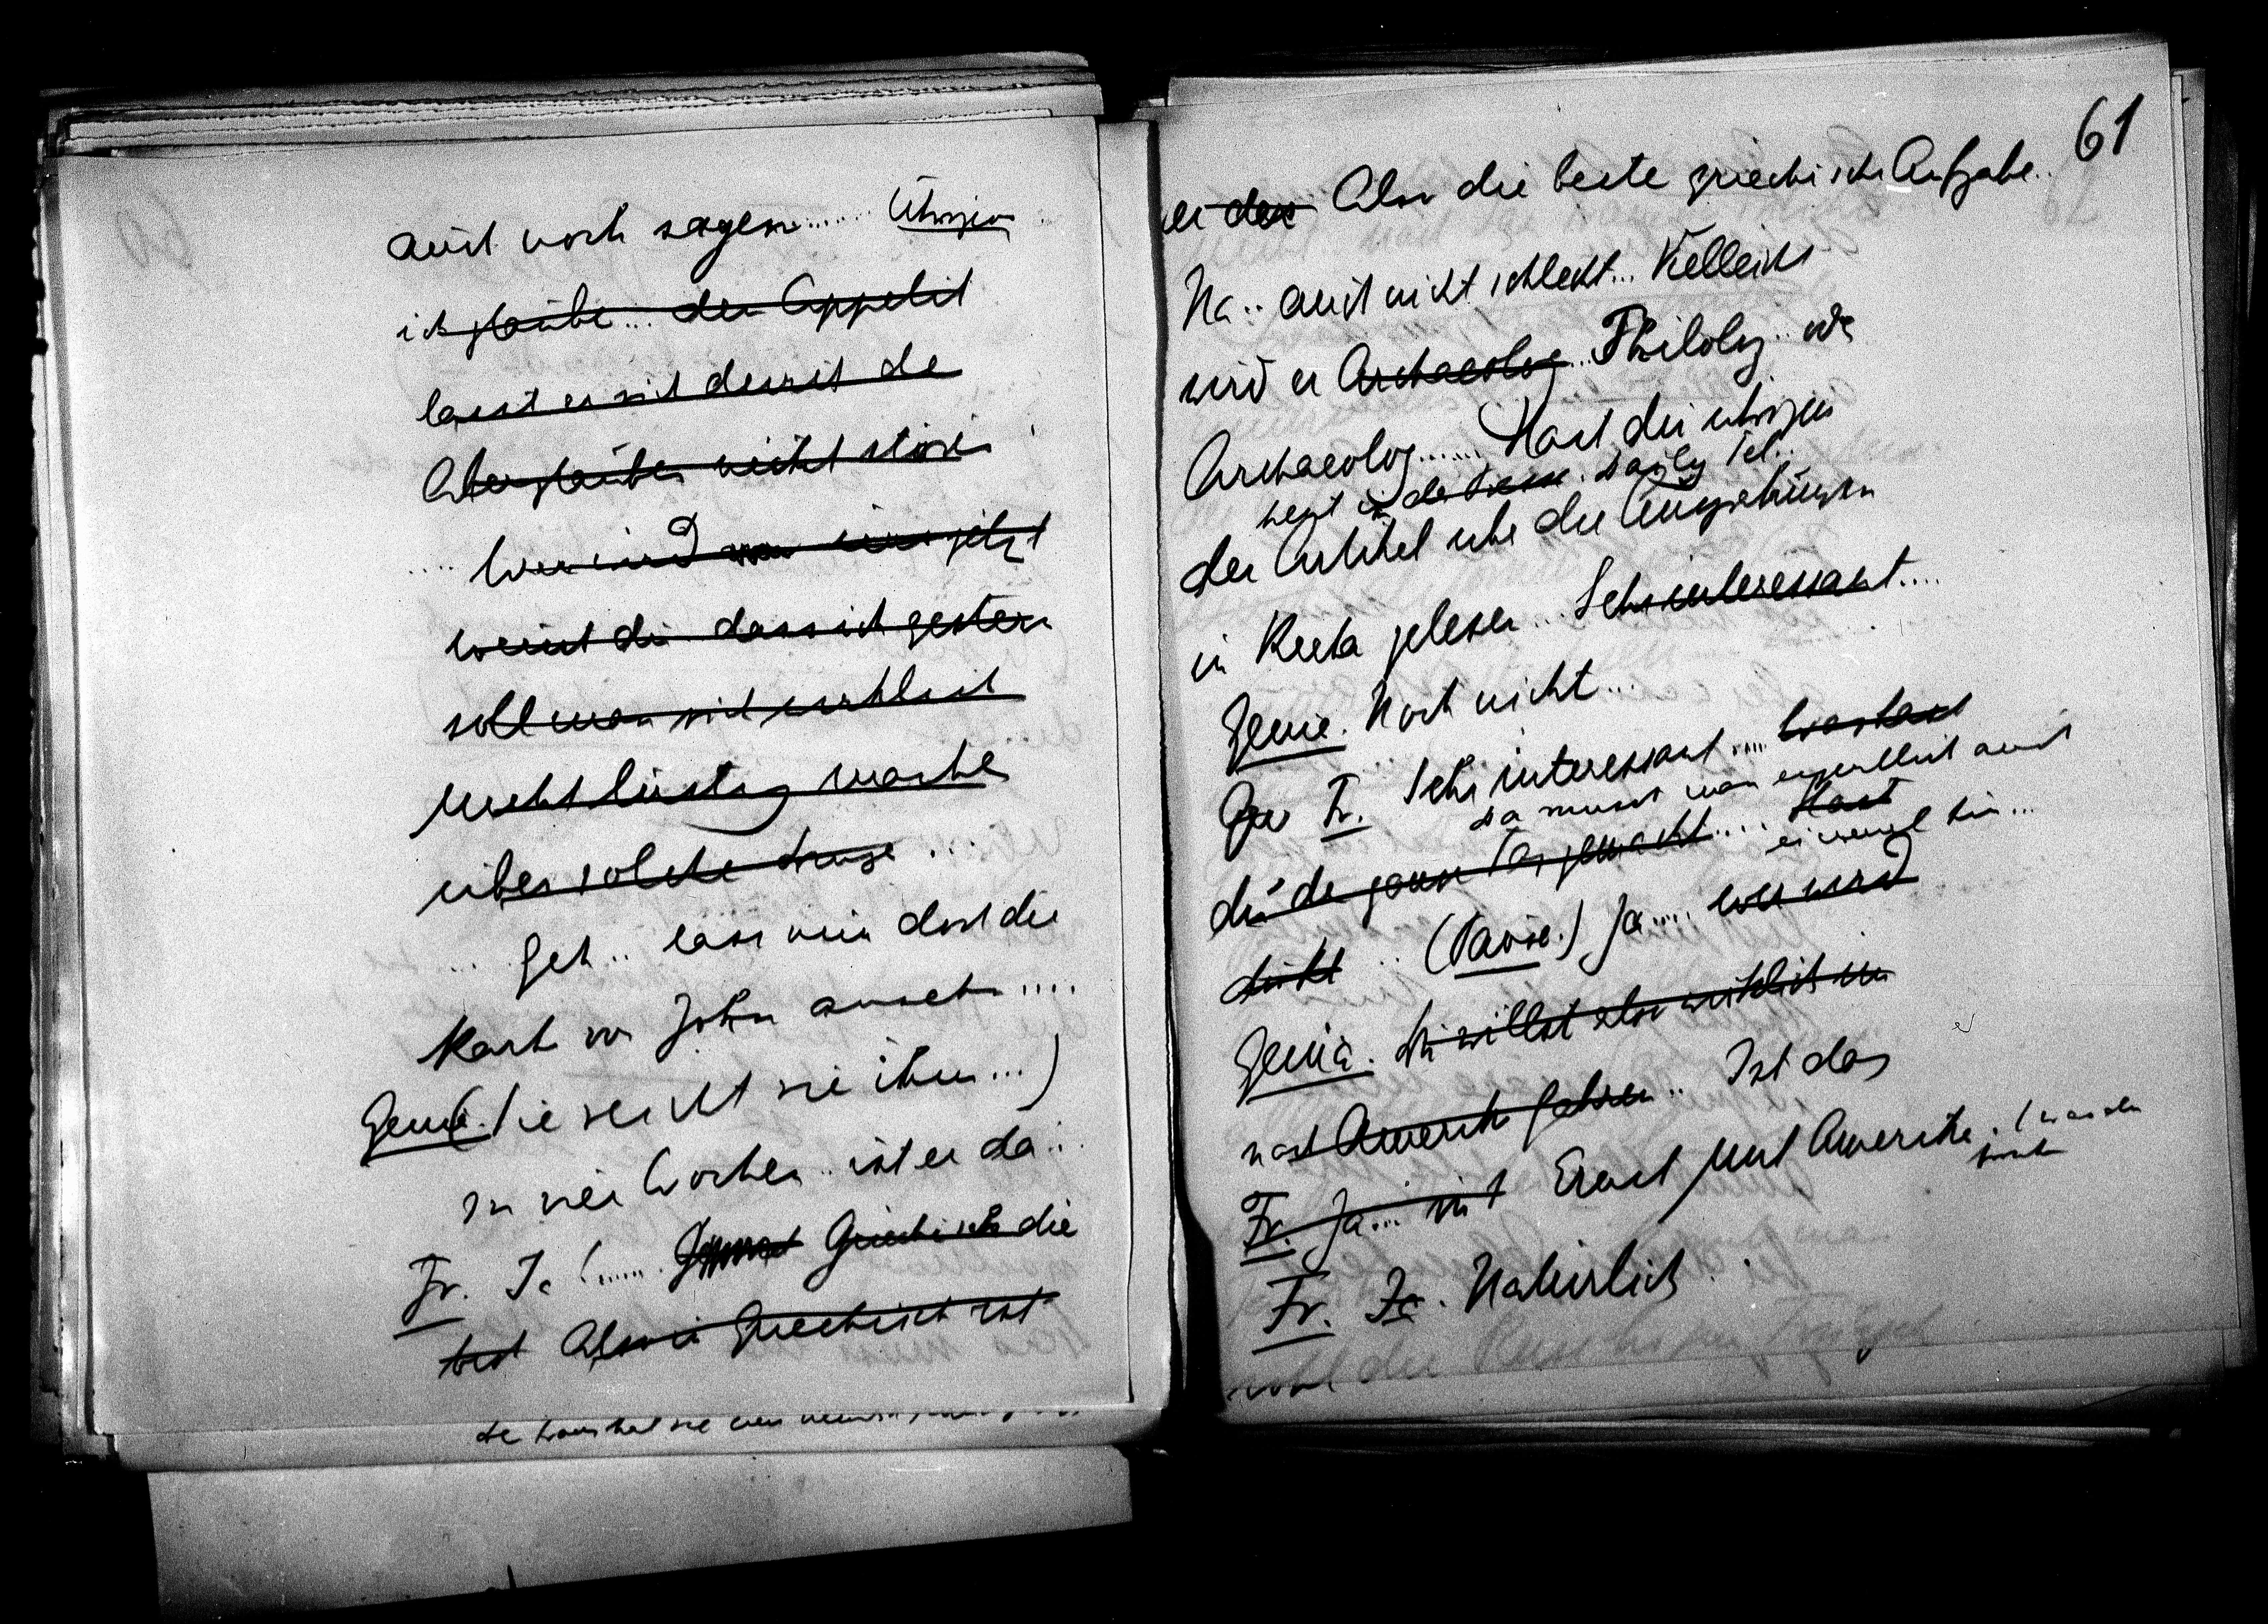 auch noch sagen ...... Übrigens
ich glaube ... den Appetit
lasst er sich durch de
Aberglauben nicht stören
.... Wer wird von uns jetzt
weisst du dass ich gestern
soll man sich wirklich
nicht lustig mache
über solche Dinge ...
... Geh .. lass mich doch die
Karte von John ansehn ....
Genia. (Sie reicht sie ihm ...)
In vier Wochen .. ist er da ..
Fr. Ja! ..... Griechisch die
best Also in Griechisch ist
61
er der Also die beste griechische Aufgabe ..
Na .. auch nicht schlecht ... Vielleicht
wird er Archaeolog .. Philolog .. oder
Archaeolog ...... Hast du übrigens
heut in der Daily Tel..
den Artikel über die Ausgrabungen
in Kreta gelesen .. Sehr interessant ....
Genia. Noch nicht ...
Fr. Sehr interessant .... Was hast
da musst man eigentlich auch
du den ganzen Tag gemacht .... Hast
einmal hin ...
.. (Pause.) Ja .... wer wird
Genia. Du willst also wirklich
nach Amerika fahren .. Ist das
Fr. Ja ... mit Ernst mit Amerika.
Fr. Ja. Natürlich .